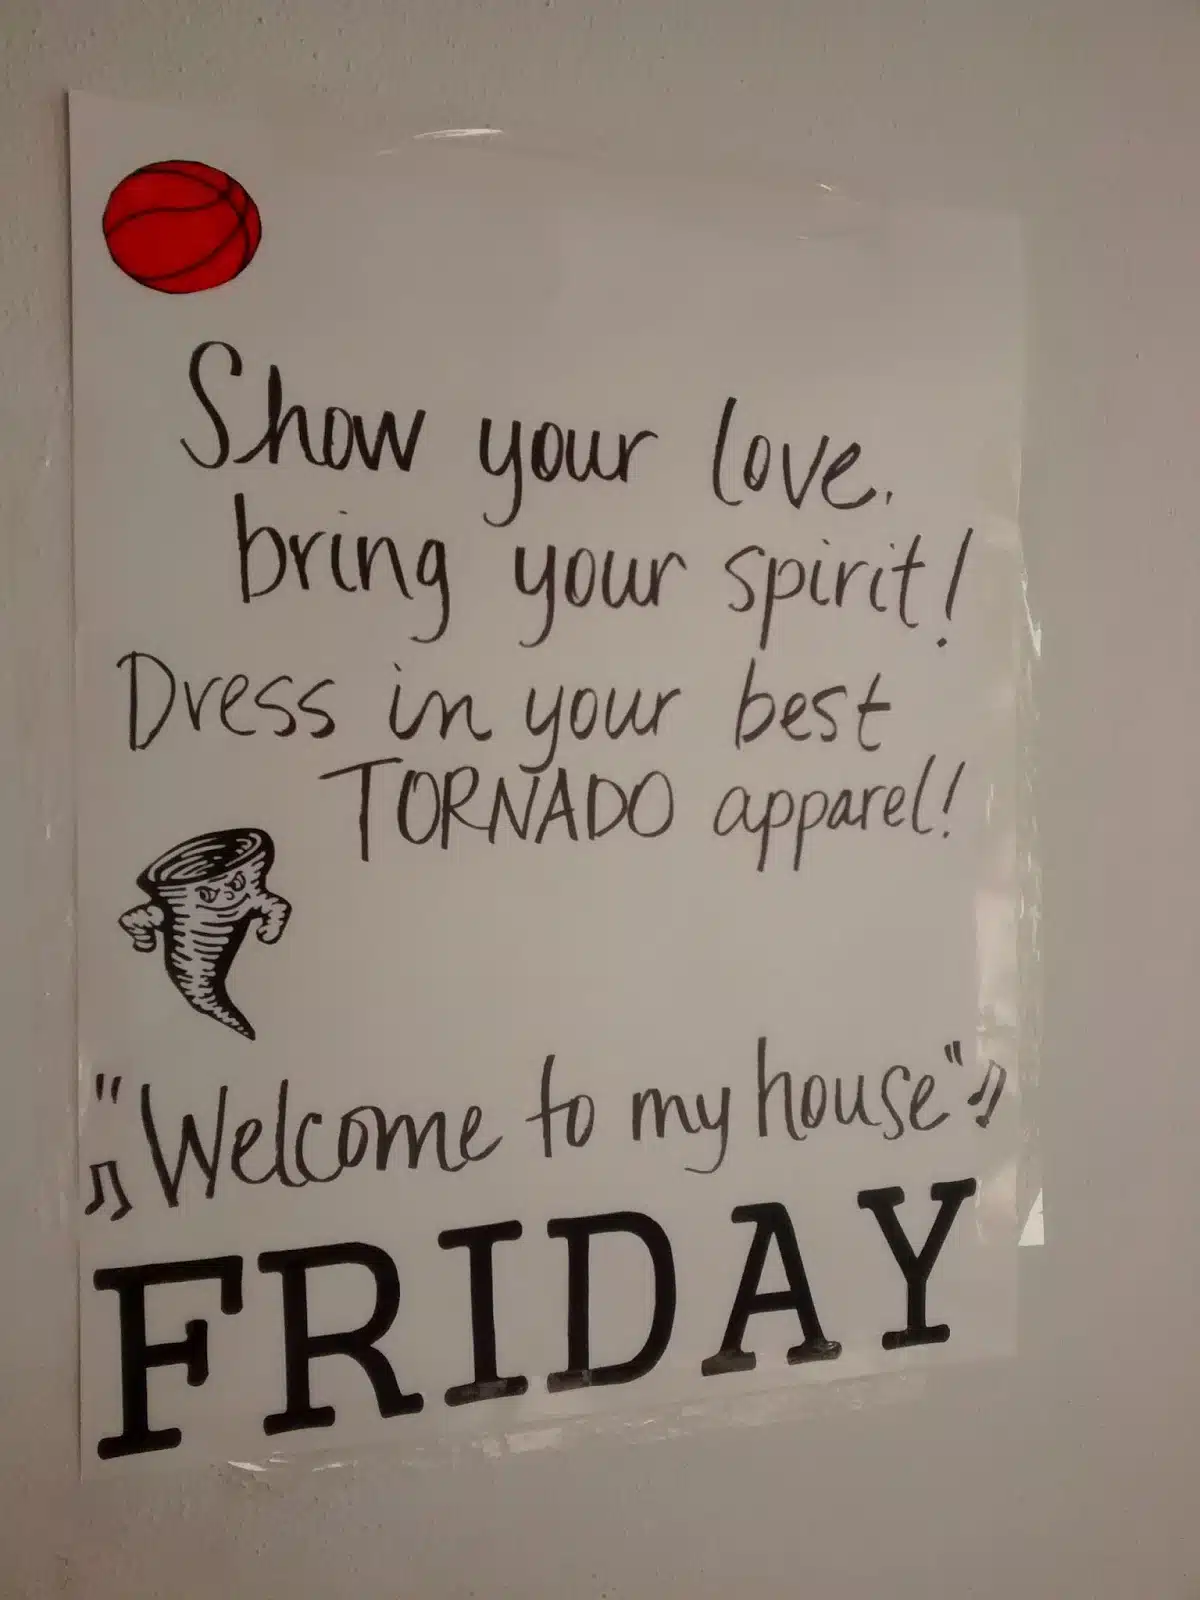 Show your love.
bring your spirit!
Dress in your best
TORNADO apparel!
"Welcome to my house"
FRIDAY